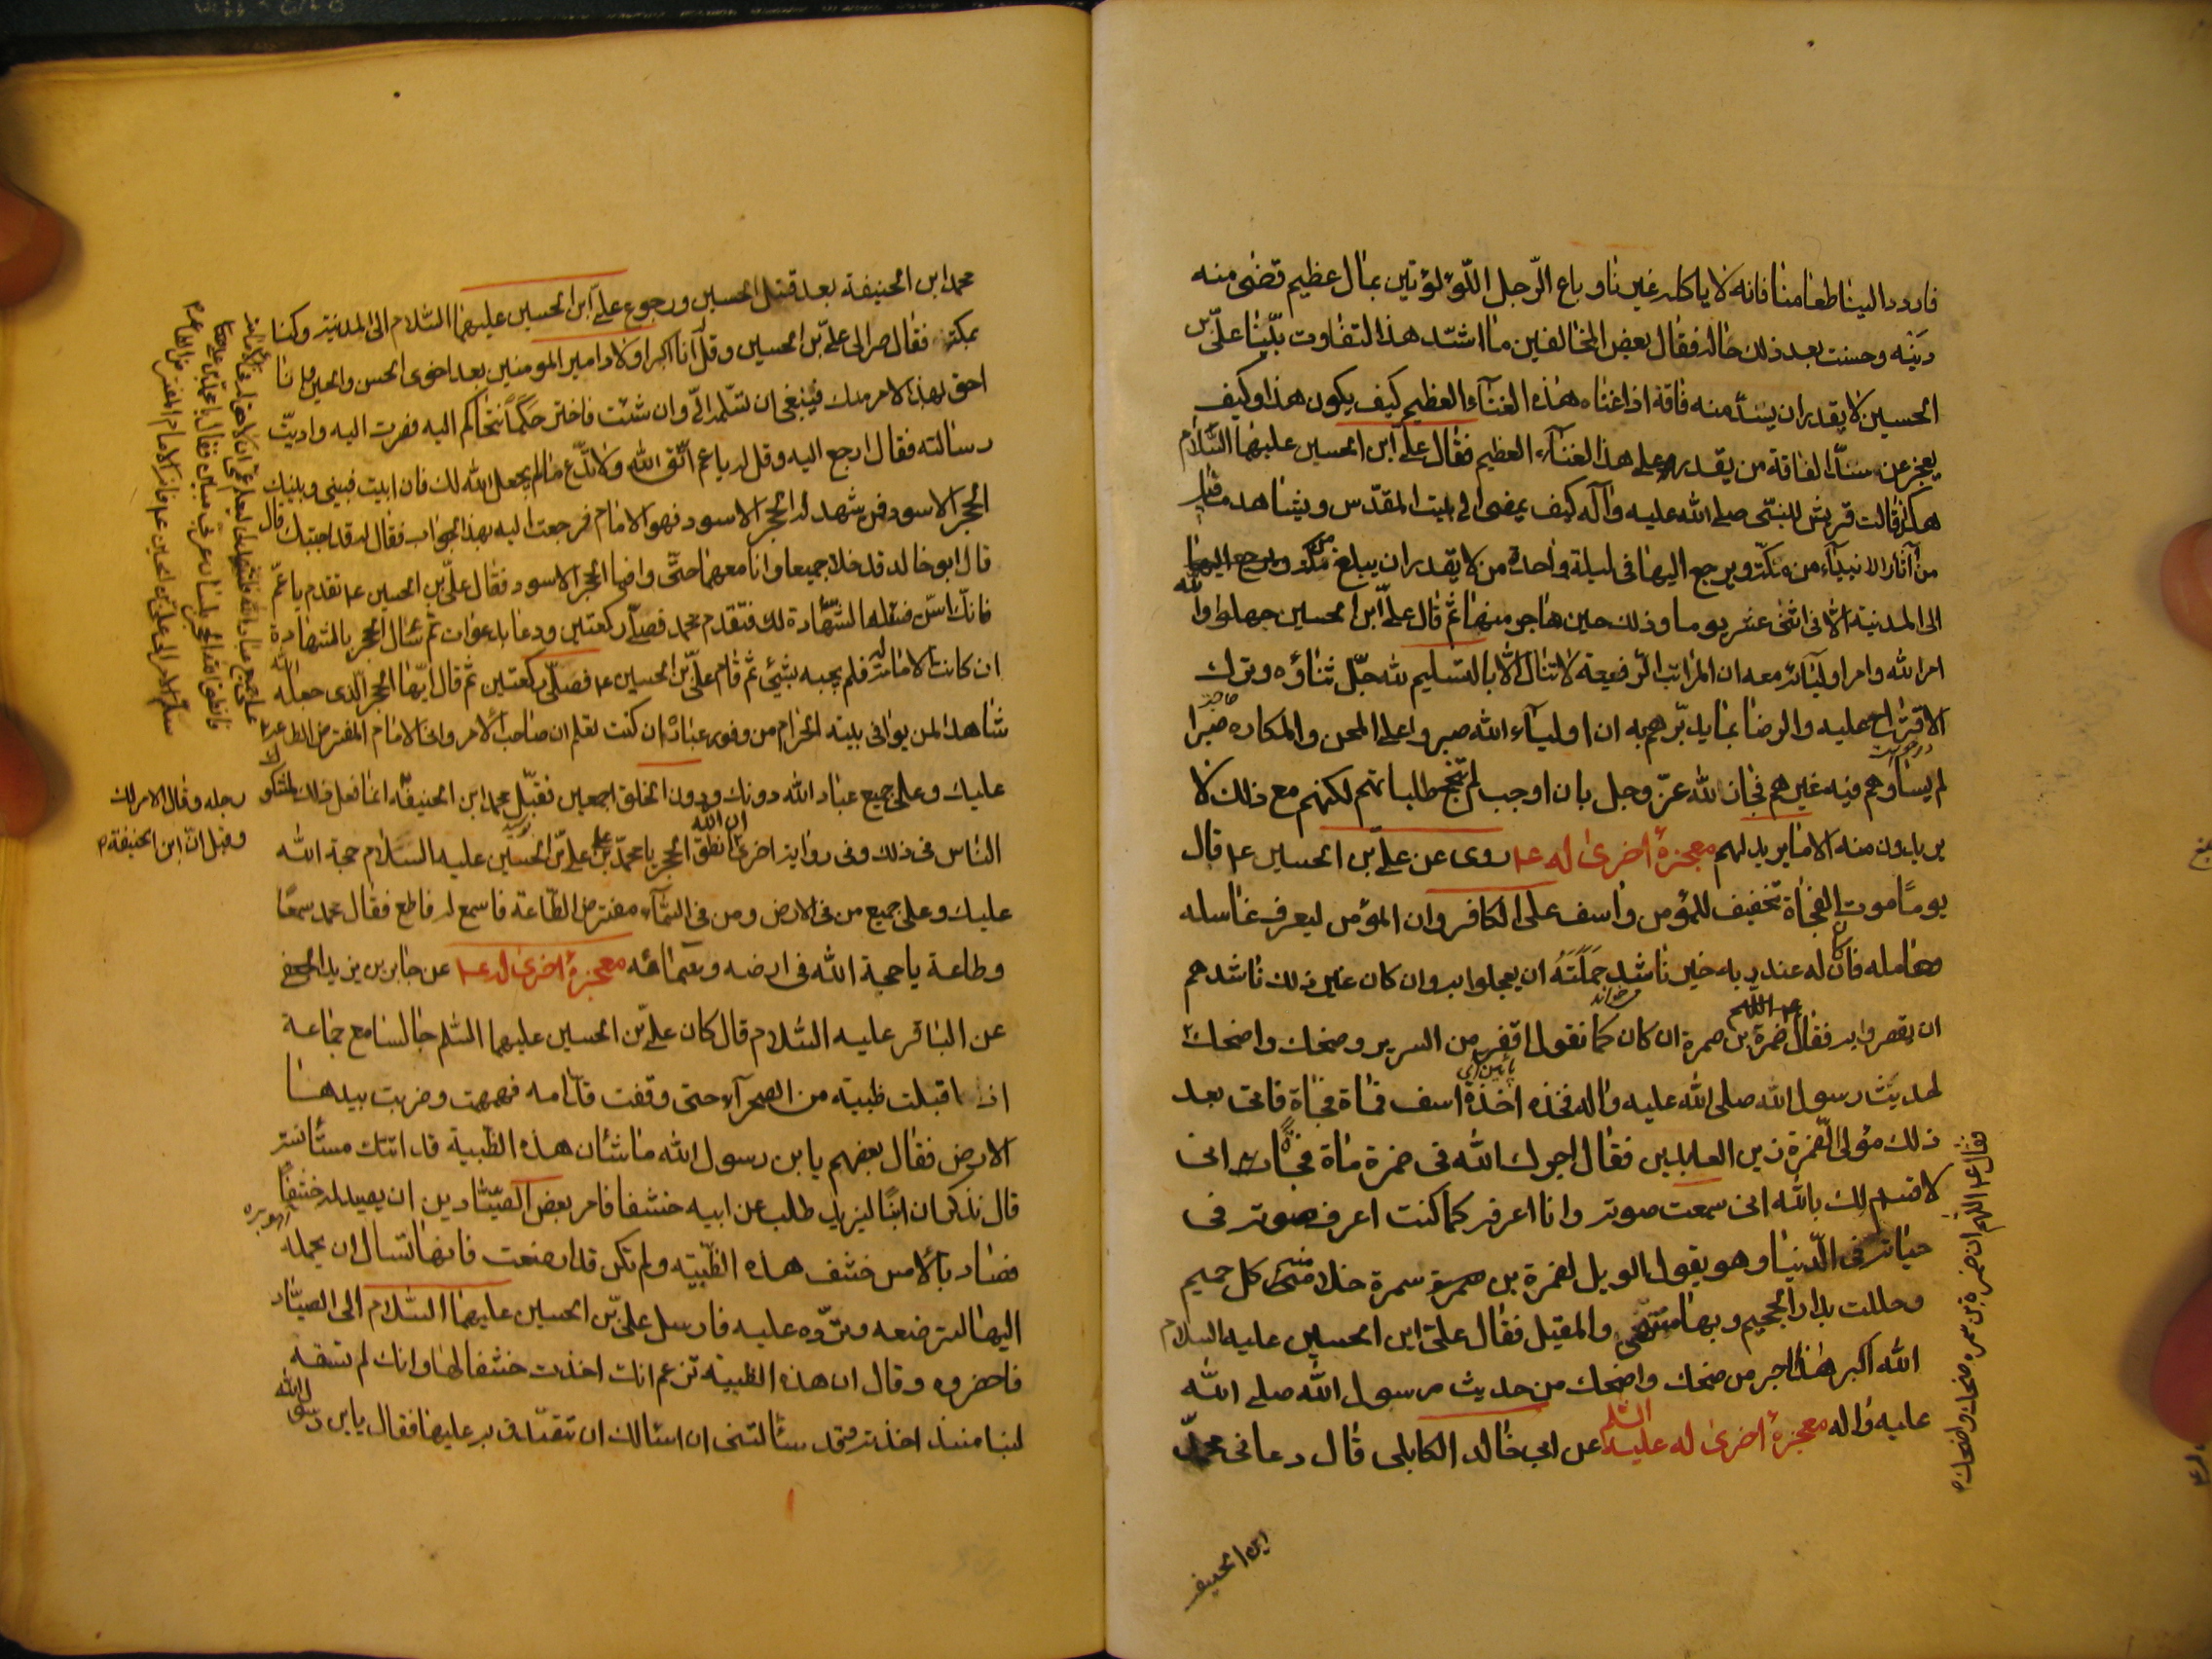 فاردد الينا طعامنا فانه لا ياكله غيرنا وباع الرّجل اللّؤلؤتين بمال عظيم قضى منه
دينه وحسنت بعد ذلك حاله فقال بعض المخالفين ما اشدّ هذا التفاوت بيّنا علىّ بن
الحسين لا يقدر ان يسدّ منه فاقة اذ اغناه هذه الغنآء العظيم كيف يكون هذا وكيف
يعجز عن سدّ الفاقة من يقدر على هذا الغنآء العظيم فقال علىّ ابن الحسين عليهما السّلام
هكذا قالت قريش للنبىّ صلى الله عليه وآله كيف يمضى الى بيت المقدّس ويشاهد ما فيه
من آثار الانبيآء من مكّة ويرجع اليها فى ليلة واحدة من لا يقدر ان يبلغ من مكّة
الى المدينة الّا فى اثنى عشر يوما وذلك حين هاجر منها ثم قال علىّ ابن الحسين جهلوا والله
امر الله وامر اوليآئه معه ان المراتب الرّفيعة لا تنال الّا بالتسليم لله جلّ ثناؤه وترك
الاقتراح عليه والرضا بما يدبّرهم به ان اوليآء الله صبروا على المحن والمكاره صبرا
لم يساوهم فيه غيرهم فجازا لله عزّ وجل بان اوجب لهم نجح طلباتهم لكنهم مع ذلك لا
يريدون منه الا ما يريد لهم معجزة اخرى له ع روى عن علىّ بن الحسين ع قال
يومًا موت الفجأة تخفيف للمؤمن واسف على الكافر وان المؤمن ليعرف غاسله
وحامله فان كان له عند ربه خير ناشد حملته ان يعجلوا به وان كان غير ذلك ناشدهم
ان يقصروا به فقال ضمرة بن سمرة ان كان كما تقول اقفز من السرير وضحك واضحك
لحديث رسول الله صلى الله عليه واله فخذه اخذة اسف فمات فجاة فاتى بعد
ذلك مولى لضمرة زين العابدين فقال اجرك الله فى ضمرة مات فجأة انى
لاقسم لك بالله انى سمعت صوته وانا اعرفه كما كنت اعرف صوته فى
حياته فى الدّنيا وهو يقول الويل لضمرة بن سمرة خلا منى كل حميم
وحللت بدار الجحيم وبها مبيتى والمقيل فقال علىّ ابن الحسين عليه السلام
الله اكبر هذا اجر من ضحك واضحك من حديث رسول الله صلى الله
عليه واله معجزة اخرى له عليه السّلم عن ابى خالد الكابلى قال دعانى محمّد
ابن الحنيفه
فقال ع اللهم ان ضمرة بن سمره ضحك واضحك
محمد ابن الحنيفة بعد قتل الحسين ورجوع علىّ ابن الحسين عليهما السّلام الى المدينة وكنا
بمكة فقال صر الى علىّ بن الحسين وقل له انا اكبر اولاد امير المومنين بعد اخوى الحسن والحسين وانا
احق بهذا الامر منك فينبغى ان تسلّمه الىّ وان شئت فاختر حكمًا نتحاكم اليه فصرت اليه واديّت
رسالته فقال ارجع اليه وقل له يا عم اتّق الله ولا تدّع ما لم يجعل الله لك فان ابيت فبينى وبينك
الحجر الاسود فمن شهد له الحجر الاسود فهو الامام فرجعت اليه بهذا الجواب فقال له قد اجبتك قال
قال ابو خالد فدخلا جميعا وانا معهما حتّى وافيا الحجر الاسود فقال علىّ بن الحسين ع تقدم يا عمّ
فانّك اسنّ فسئله الشّهادة لك فتقدم محمد فصلّى ركعتين ودعا بدعوات ثم سئال الحجر بالشهادة
ان كانت الامامة له فلم يجبه بشيئى ثم قام علىّ بن الحسين ع فصلّى ركعتين ثم قال ايّها الحجر الّذى جعله الله
شاهدا لمن يوافى بيته الحرام من وفود عباده ان كنت تعلم ان صاحب الامر وانى الامام المفترض الطاعة
عليك وعلى جميع عباد الله دونك ودون الخلق اجمعين فقبّل محمد ابن الحنيفّه انما فعل ذلك لشكوك
الناس فى ذلك وفى رواية اخرى ان الله انطق الحجر يا محمّد بن علىّ علىّ بن الحسين عليه السّلام حجة الله
عليك وعلى جميع من فى الارض ومن فى السّمآء مفترض الطّاعة فاسمع له فاطع فقال محمد سمعًا
وطاعة يا حجة الله فى ارضه وسمائه معجزة اخرى له ع عن جابر بن يزيد الجعفى
عن الباقر عليه السّلام قال كان علىّ بن الحسين عليهما السّلم جالسا مع جماعة
اذ اقبلت ظبية من الصحرآء حتى وقفت قدّامه فهمهمت وضربت بيدها
الارض فقال بعضهم يا بن رسول الله ما شأن هذه الظّبية قد اتتك مستأنسة
قال تذكر ان ابنًا ليزيد طلب عن ابيه خشفا فامر بعض الصيّادين ان يصيد له خشفًا
فصاد بالامس خشف هذه الظّبية ولم تكن قد ارضعته فانها تسال ان يحمله
اليها لترضعه وتردّه عليه فارسل علىّ بن الحسين عليهما السّلام الى الصيّاد
فاحضروه وقال ان هذه الظبية تزعم انك اخذت خشفا لها وانك لم تسقه
لبنا منذ اخذته وقد سئالتنى ان اسئالك ان تتصدّق به عليها فقال يا بن رسول الله
رجله وقال الامر لك
وقيل انّ ابن الحنيفة